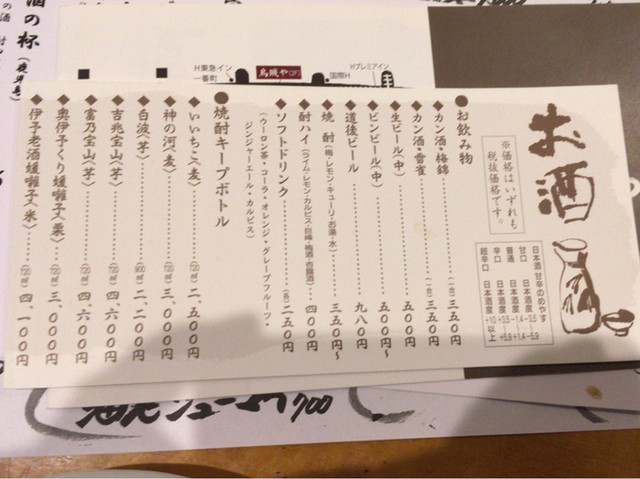 お酒
※価格はいずれも
税抜価格です。
日本酒 甘辛のめやす
甘口 日本酒度 -3.5～-5.9
普通 日本酒度 -1.4～+1.4
辛口 日本酒度 +3.5～+5.9
超辛口 日本酒度 +10以上
●お飲み物
◆カン酒・梅錦………(一合)三五〇円
◆カン酒・雪雀………(一合)三五〇円
◆生ビール(中)………五〇〇円
◆ビンビール(中)………五〇〇円～
◆道後ビール………九八〇円
◆焼酎(梅・レモン・キューリ・お湯・水)………三五〇円～
◆酎ハイ(ライム・レモン・カルピス・巨峰・梅酒・杏露酒)………四〇〇円
◆ソフトドリンク………(各)二五〇円
(ウーロン茶・コーラ・オレンジ・グレープフルーツ・
ジンジャーエール・カルピス)
●焼酎キープボトル
◆いいちこ〈麦〉………(720㎖)二、五〇〇円
◆神の河〈麦〉………(720㎖)三、〇〇〇円
◆白波〈芋〉………(900㎖)二、二〇〇円
◆吉兆宝山〈芋〉………(720㎖)四、六〇〇円
◆富乃宝山〈芋〉………(720㎖)四、六〇〇円
◆奥伊予くり媛囃子〈栗〉………(720㎖)三、〇〇〇円
◆伊予老酒媛囃子〈米〉………(720㎖)四、一〇〇円
H東急イン
一番町
国際H
Hプレミアイン
酒の杯
700